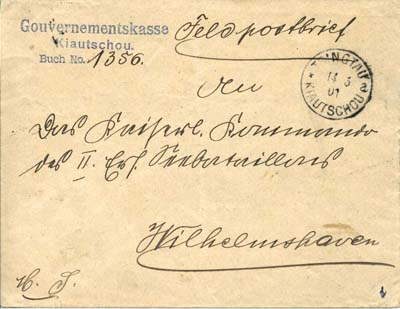 Gouvernementskasse
Kiautschou.
Buch No. 1356.
Feldpostbrief
TSINGTAU
14 3
01
KIAUTSCHOU
a
An
Das Kaiserl. Kommando
des II. Ers. Seebataillons
Wilhelmshaven